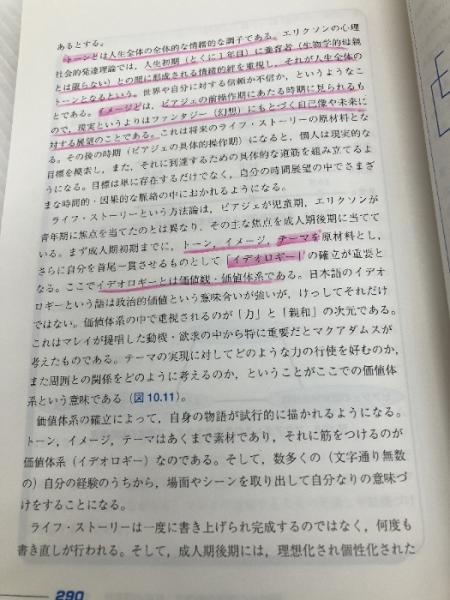 あるとする。
トーンとは人生全体の全体的な情緒的な調子である。エリクソンの心理
社会的発達理論では，人生初期（とくに1年目）に養育者（生物学的母親
とは限らない）との間に形成される情緒的絆を重視し，それが人生全体の
トーンとなるという。世界や自分に対する信頼か不信か，というようなこ
とである。イメージとは，ピアジェの前操作期にあたる時期に見られるも
ので，現実というよりはファンタジー（幻想）にもとづく自己像や未来に
対する展望のことである。これは将来のライフ・ストーリーの原材料とな
る。その後の時期（ピアジェの具体的操作期）になると，個人は現実的な
目標を模索し，また，それに到達するための具体的な道筋を組み立てるよ
うになる。目標は単に存在するだけでなく，自分の時間展望の中でさまざ
まな時間的・因果的な脈絡の中におかれるようになる。
ライフ・ストーリーという方法論は，ピアジェが児童期，エリクソンが
青年期に焦点を当てたのとは異なり，その主な焦点を成人期後期に当てて
いる。まず成人期初期までに，トーン，イメージ，テーマを原材料とし，
さらに自分を首尾一貫させるものとして「イデオロギー」の確立が重要と
なる。ここでイデオロギーとは価値観・価値体系である。日本語のイデオ
ロギーという語は政治的価値という意味合いが強いが，けっしてそれだけ
ではない。価値体系の中で重視されるのが「力」と「親和」の次元である。
これはマレイが提唱した動機・欲求の中から特に重要だとマクアダムスが
考えたものである。テーマの実現に対してどのような力の行使を好むのか，
また周囲との関係をどのように考えるのか，ということがここでの価値体
系という意味である（図10.11）。
価値体系の確立によって，自身の物語が試行的に描かれるようになる。
トーン，イメージ，テーマはあくまで素材であり，それに筋をつけるのが
価値体系（イデオロギー）なのである。そして，数多くの（文字通り無数
の）自分の経験のうちから，場面やシーンを取り出して自分なりの意味づ
けをすることになる。
ライフ・ストーリーは一度に書き上げられ完成するのではなく，何度も
書き直しが行われる。そして，成人期後期には，理想化され個性化された
290